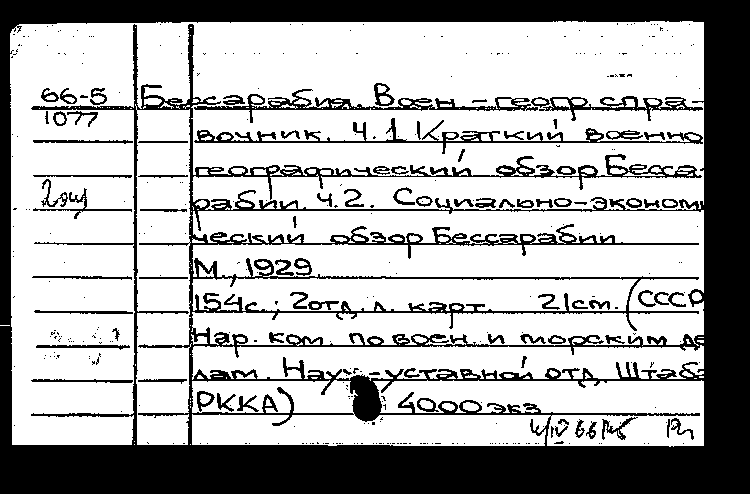 66-5 Бессарабия. Воен-геогр спра-
1077
вочник. Ч.1 Краткий военно
географический обзор Бесса-
2 экз рабии. Ч.2. Социально-эконом
ческий обзор Бессарабии.
М., 1929
154с.; 2отд. л. карт. 21см. (СССР
Нар. ком. по воен. и морским де
лам. Науч-уставной отд. Штаба
РККА) 4000 экз